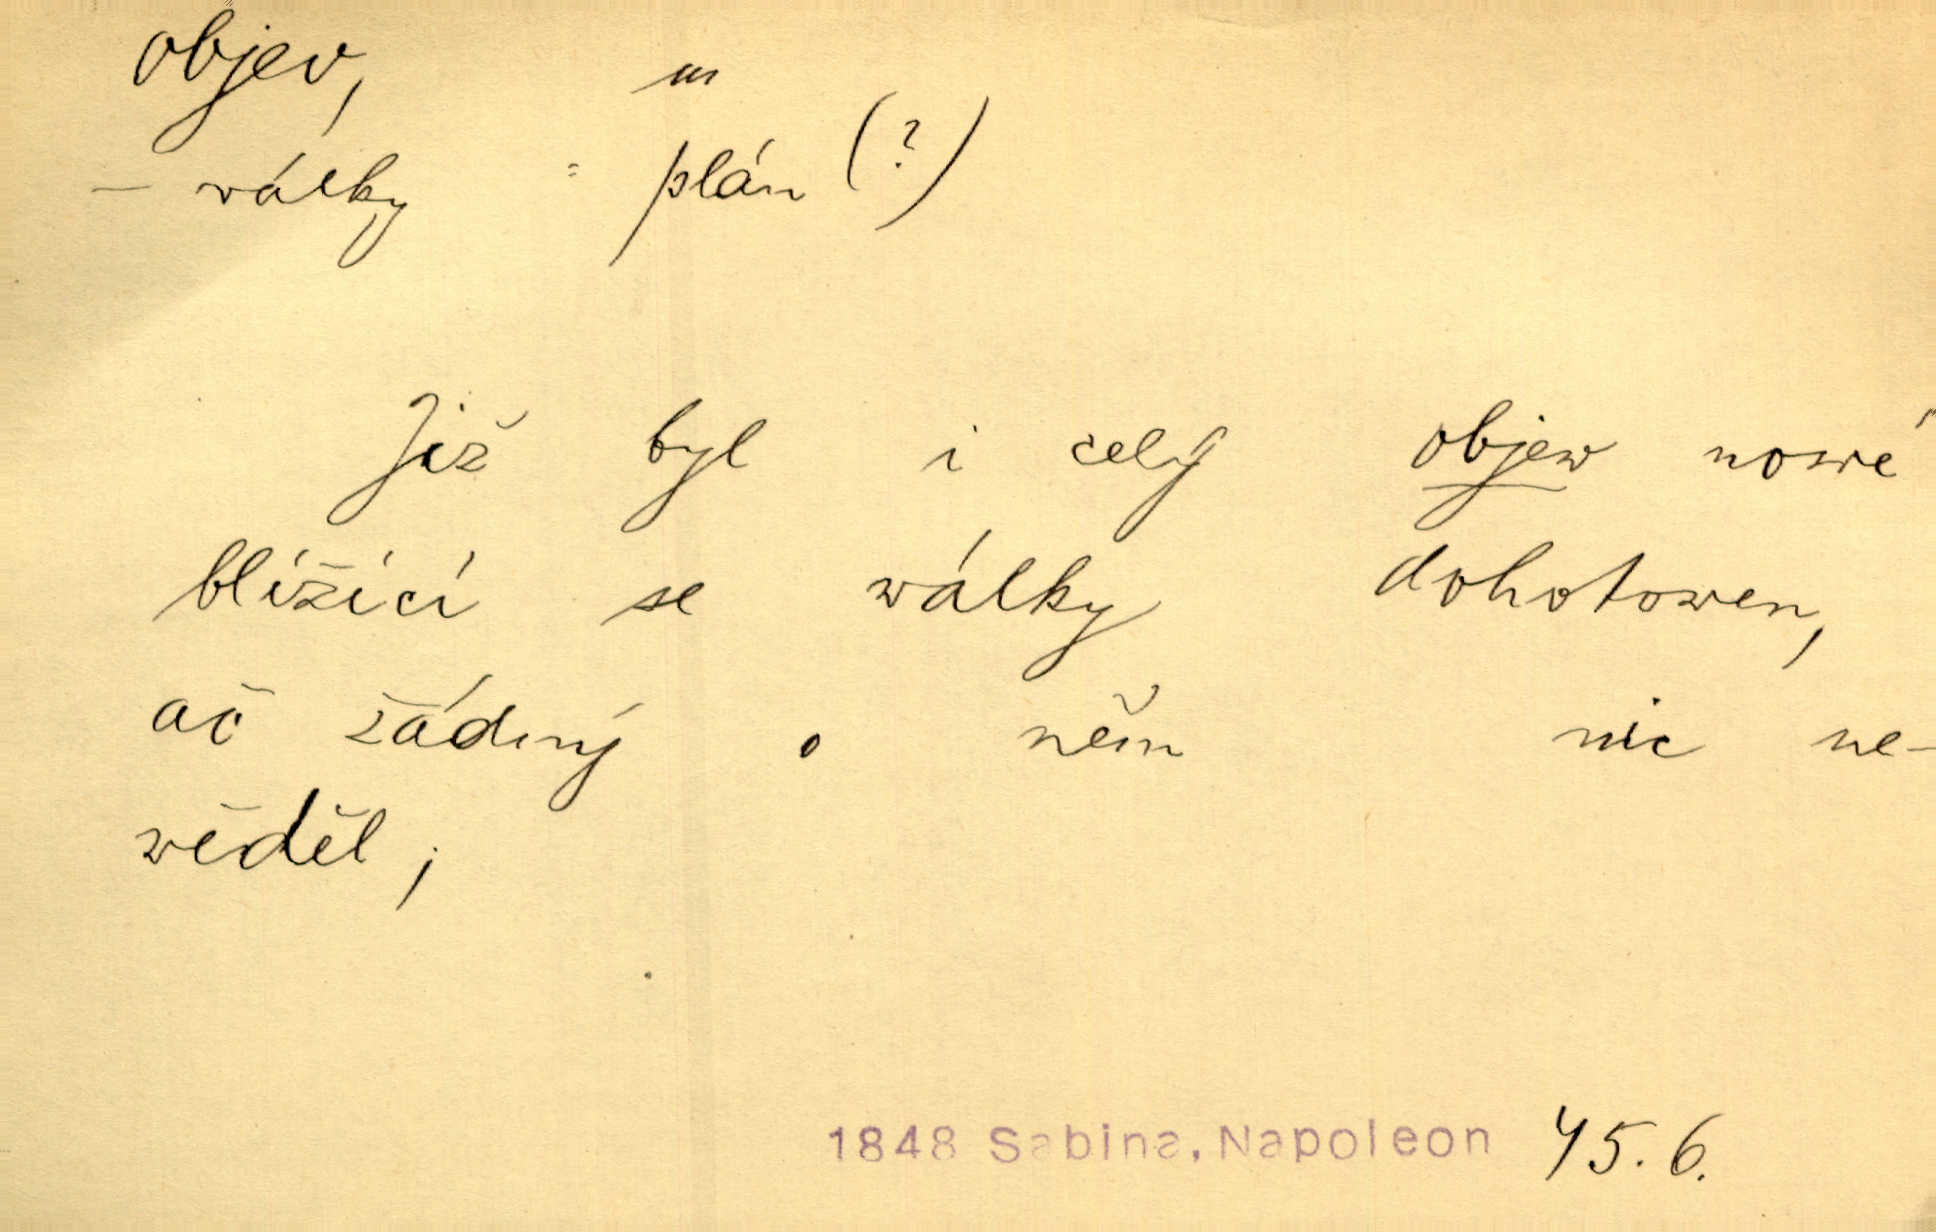 objev, m
– války = plán (?)
Již byl i celý objew nowé
blížící se wálky dohotowen,
ač žádný o něm nic ne-
wěděl ;
1848 Sabina, Napoleon 45.6.